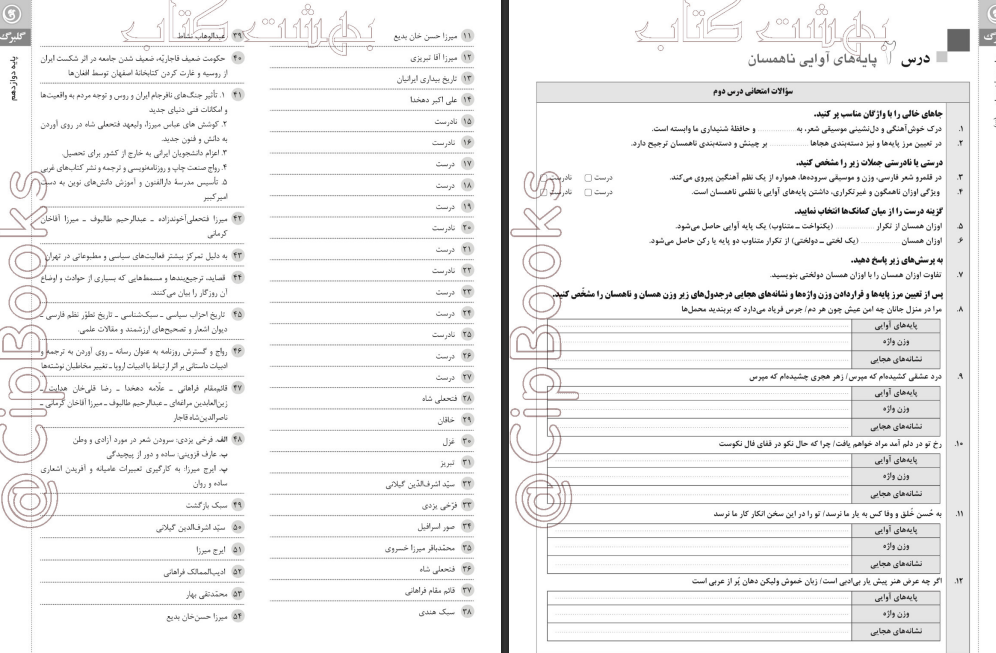 بهشت کتاب
گلبرگ
درس ۲ پایه‌های آوایی ناهمسان
سؤالات امتحانی درس دوم
جاهای خالی را با واژگان مناسب پر کنید.
۱. درک خوش‌آهنگی و دل‌نشینی موسیقی شعر، به .................. و حافظهٔ شنیداری ما وابسته است.
۲. در تعیین مرز پایه‌ها و نیز دسته‌بندی هجاها .................. بر چینش و دسته‌بندی ناهمسان ترجیح دارد.
درستی یا نادرستی جملات زیر را مشخص کنید.
۳. در قلمرو شعر فارسی، وزن و موسیقی سروده‌ها، همواره از یک نظم آهنگین پیروی می‌کند. درست □ نادرست □
۴. ویژگی اوزان ناهمگون و غیرتکراری، داشتن پایه‌های آوایی با نظمی ناهمسان است. درست □ نادرست □
گزینه درست را از میان کمانک‌ها انتخاب نمایید.
۵. اوزان همسان از تکرار .................. (یکنواخت ـ متناوب) یک پایه آوایی حاصل می‌شود.
۶. اوزان همسان .................. (یک لختی ـ دولختی) از تکرار متناوب دو پایه یا رکن حاصل می‌شود.
به پرسش‌های زیر پاسخ دهید.
۷. تفاوت اوزان همسان را با اوزان همسان دولختی بنویسید.
پس از تعیین مرز پایه‌ها و قراردادن وزن واژه‌ها و نشانه‌های هجایی درجدول‌های زیر وزن همسان و ناهمسان را مشخّص کنید.
۸. مرا در منزل جانان چه امن عیش چون هر دم/ جرس فریاد می‌دارد که بربندید محمل‌ها
پایه‌های آوایی
وزن واژه
نشانه‌های هجایی
۹. درد عشقی کشیده‌ام که مپرس/ زهر هجری چشیده‌ام که مپرس
پایه‌های آوایی
وزن واژه
نشانه‌های هجایی
۱۰. رخ تو در دلم آمد مراد خواهم یافت/ چرا که حال نکو در قفای فال نکوست
پایه‌های آوایی
وزن واژه
نشانه‌های هجایی
۱۱. به حُسن خُلق و وفا کس به یار ما نرسد/ تو را در این سخن انکار کار ما نرسد
پایه‌های آوایی
وزن واژه
نشانه‌های هجایی
۱۲. اگر چه عرض هنر پیش یار بی‌ادبی است/ زبان خموش ولیکن دهان پُر از عربی است
پایه‌های آوایی
وزن واژه
نشانه‌های هجایی
بهشت کتاب
۱۱ میرزا حسن خان بدیع
۱۲ میرزا آقا تبریزی
۱۳ تاریخ بیداری ایرانیان
۱۴ علی اکبر دهخدا
۱۵ نادرست
۱۶ نادرست
۱۷ درست
۱۸ درست
۱۹ درست
۲۰ نادرست
۲۱ درست
۲۲ نادرست
۲۳ درست
۲۴ درست
۲۵ نادرست
۲۶ درست
۲۷ درست
۲۸ فتحعلی شاه
۲۹ خاقان
۳۰ غزل
۳۱ تبریز
۳۲ سیّد اشرف‌الدّین گیلانی
۳۳ فرّخی یزدی
۳۴ صور اسرافیل
۳۵ محمّدباقر میرزا خسروی
۳۶ فتحعلی شاه
۳۷ قائم مقام فراهانی
۳۸ سبک هندی
۳۹ عبدالوهاب نشاط
۴۰ حکومت ضعیف قاجاریّه، ضعیف شدن جامعه در اثر شکست ایران
از روسیه و غارت کردن کتابخانهٔ اصفهان توسط افغان‌ها
۴۱ ۱. تأثیر جنگ‌های نافرجام ایران و روس و توجه مردم به واقعیت‌ها
و امکانات فنی دنیای جدید
۲. کوشش های عباس میرزا، ولیعهد فتحعلی شاه در روی آوردن
به دانش و فنون جدید.
۳. اعزام دانشجویان ایرانی به خارج از کشور برای تحصیل.
۴. رواج صنعت چاپ و روزنامه‌نویسی و ترجمه و نشر کتاب‌های غربی
۵. تأسیس مدرسهٔ دارالفنون و آموزش دانش‌های نوین به دست
امیرکبیر
۴۲ میرزا فتحعلی‌آخوندزاده ـ عبدالرحیم طالبوف ـ میرزا آقاخان
کرمانی
۴۳ به دلیل تمرکز بیشتر فعالیت‌های سیاسی و مطبوعاتی در تهران
۴۴ قصاید، ترجیع‌بندها و مسمط‌هایی که بسیاری از حوادث و اوضاع
آن روزگار را بیان می‌کنند.
۴۵ تاریخ احزاب سیاسی ـ سبک‌شناسی ـ تاریخ تطوّر نظم فارسی ـ
دیوان اشعار و تصحیح‌های ارزشمند و مقالات علمی.
۴۶ رواج و گسترش روزنامه به عنوان رسانه ـ روی آوردن به ترجمه و
ادبیات داستانی بر اثر ارتباط با ادبیات اروپا ـ تغییر مخاطبان نوشته‌ها
۴۷ قائم‌مقام فراهانی ـ علّامه دهخدا ـ رضا قلی‌خان هدایت ـ
زین‌العابدین مراغه‌ای ـ عبدالرحیم طالبوف ـ میرزا آقاخان کرمانی ـ
ناصرالدین‌شاه قاجار
۴۸ الف. فرخی یزدی: سرودن شعر در مورد آزادی و وطن
ب. عارف قزوینی: ساده و دور از پیچیدگی
پ. ایرج میرزا: به کارگیری تعبیرات عامیانه و آفریدن اشعاری
ساده و روان
۴۹ سبک بازگشت
۵۰ سیّد اشرف‌الدین گیلانی
۵۱ ایرج میرزا
۵۲ ادیب‌الممالک فراهانی
۵۳ محمّدتقی بهار
۵۴ میرزا حسن‌خان بدیع
گلبرگ
پایه دوازدهم
@CipBooks
@CipBooks